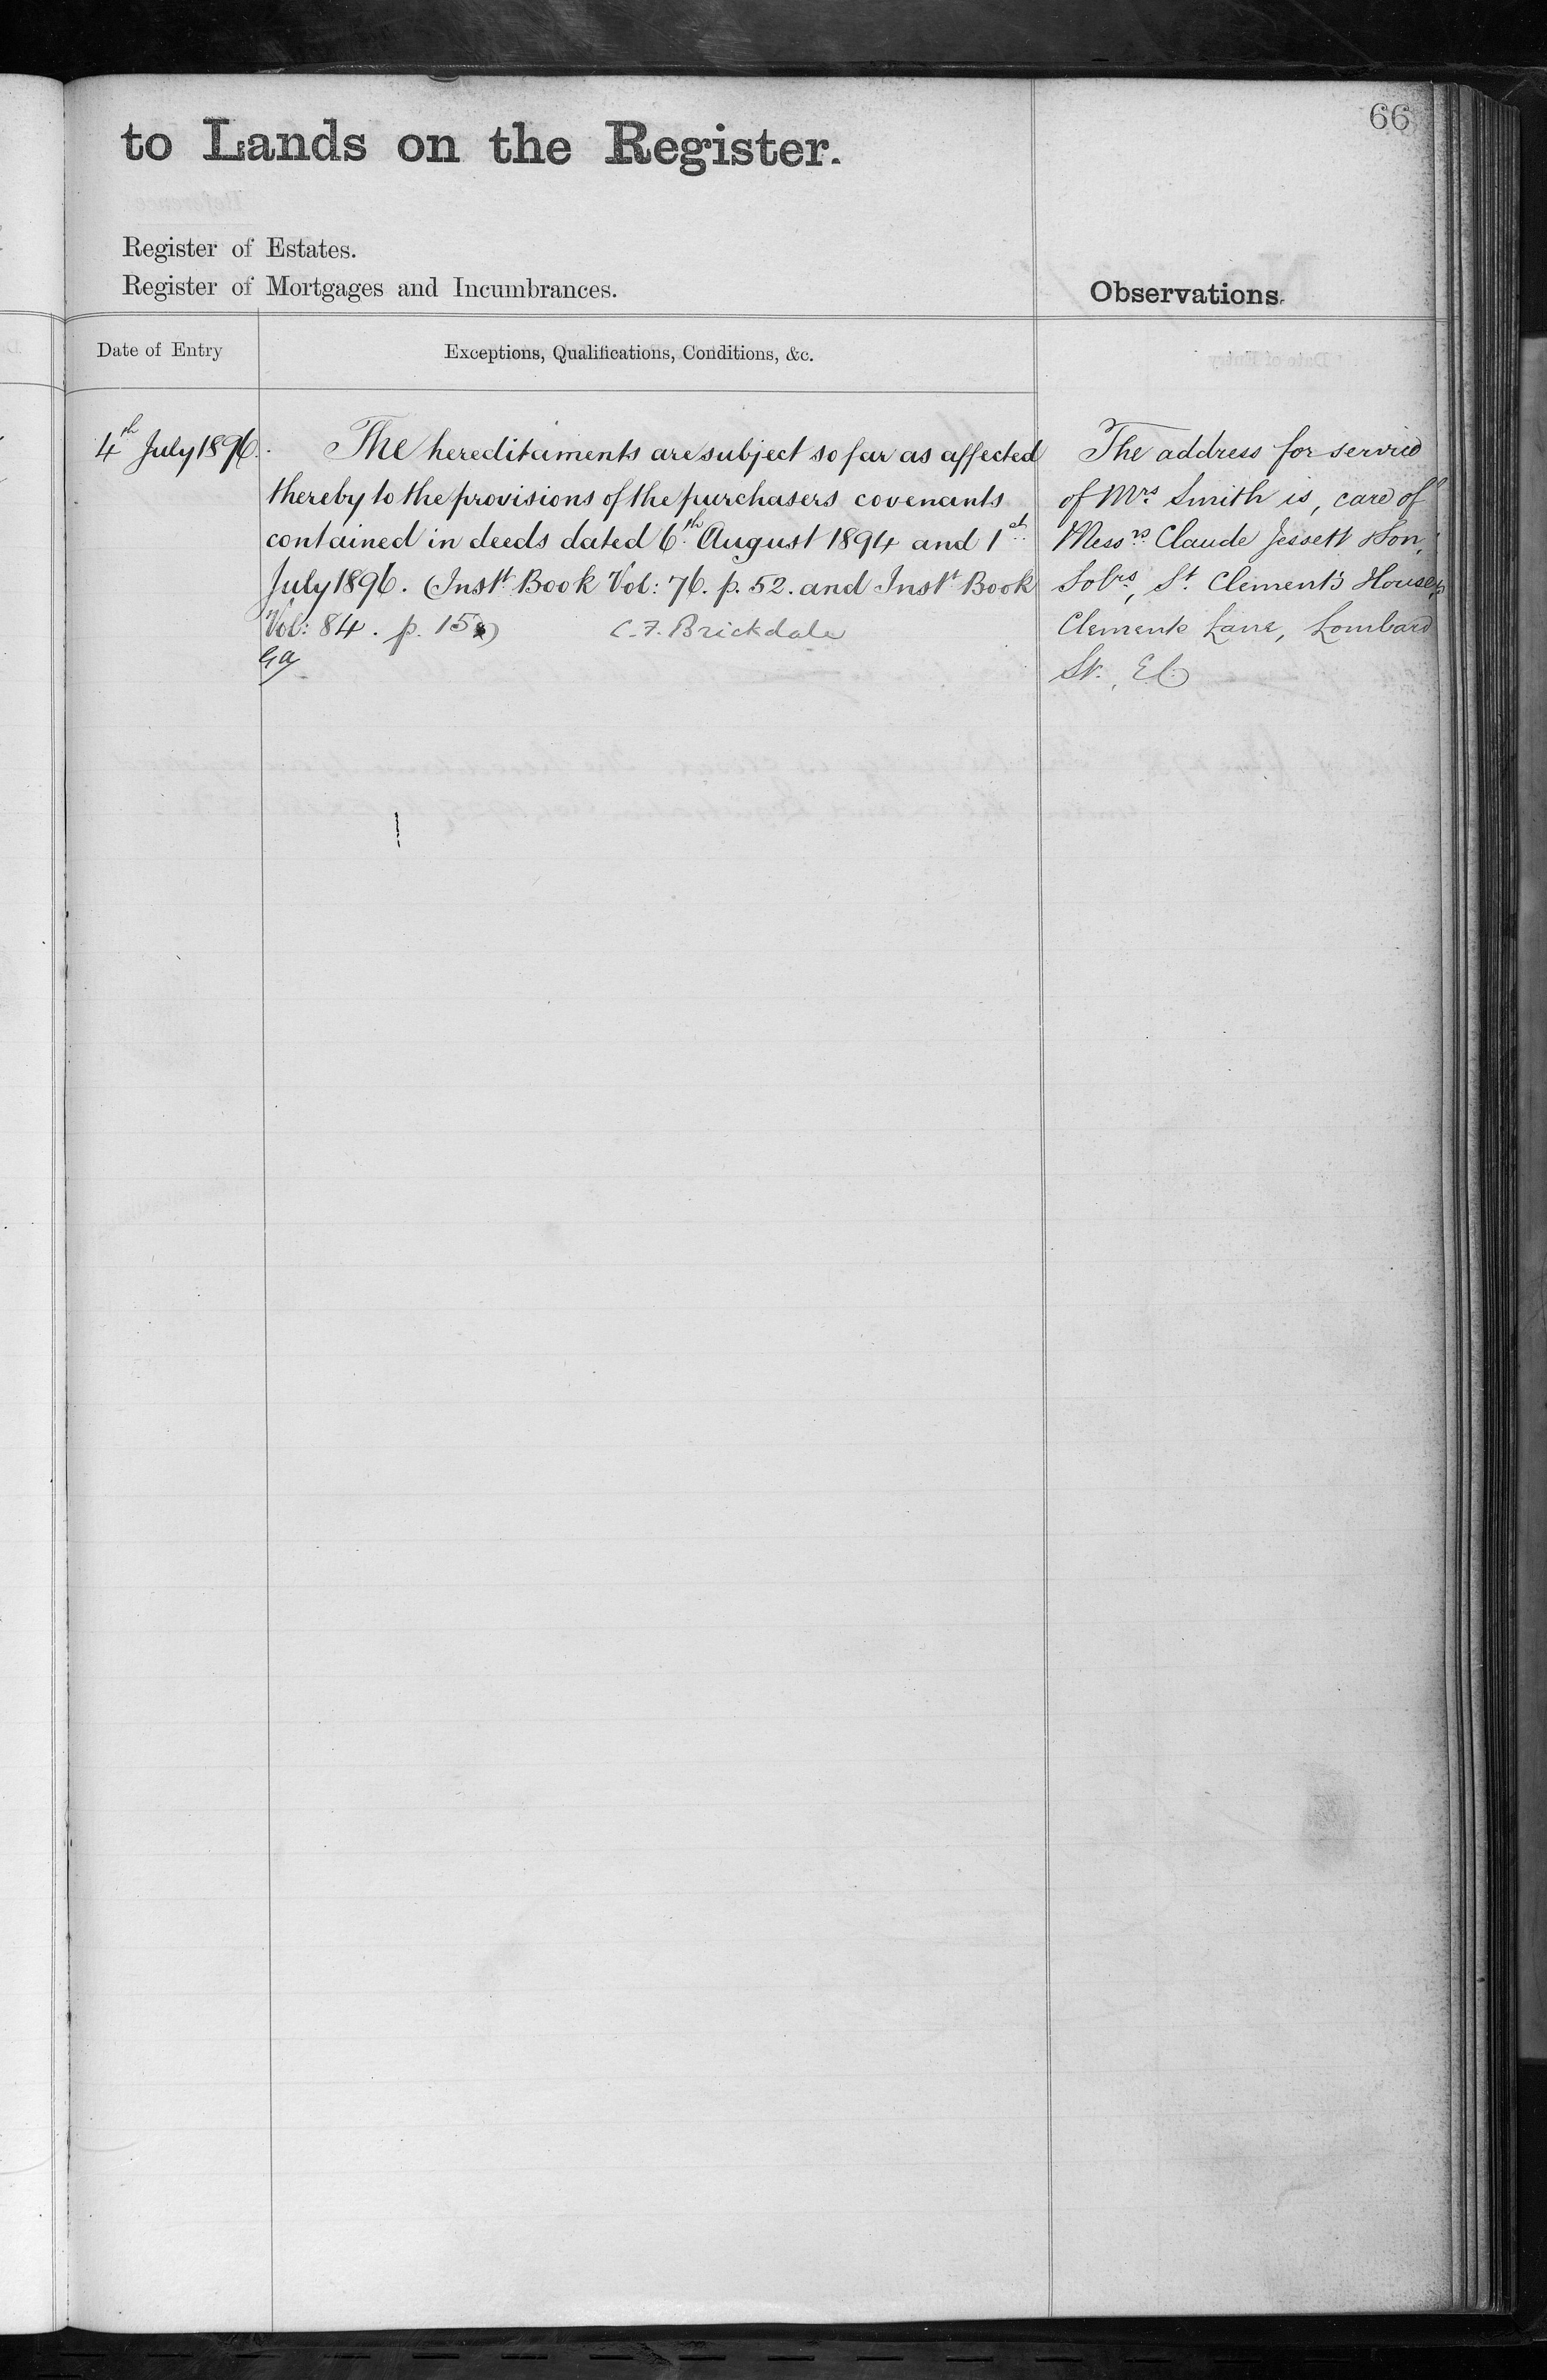 66
to Lands on the Register.
Register of Estates.
Register of Mortgages and Incumbrances.
Observations.
Date of Entry
Exceptions, Qualifications, Conditions, &c.
4th July 1896.
The hereditaments are subject so far as affected
thereby to the provisions of the purchasers covenants
contained in deeds dated 6th August 1894 and 1st
July 1896. (Instt Book Vol: 76. p. 52. and Instt Book
Vol: 84. p. 15)
C. F. Brickdale
The address for service
of Mrs Smith is, care of
Messrs Claude Jessett & Son,
Solrs, St. Clement's House,
Clements Lane, Lombard
St., E.C.